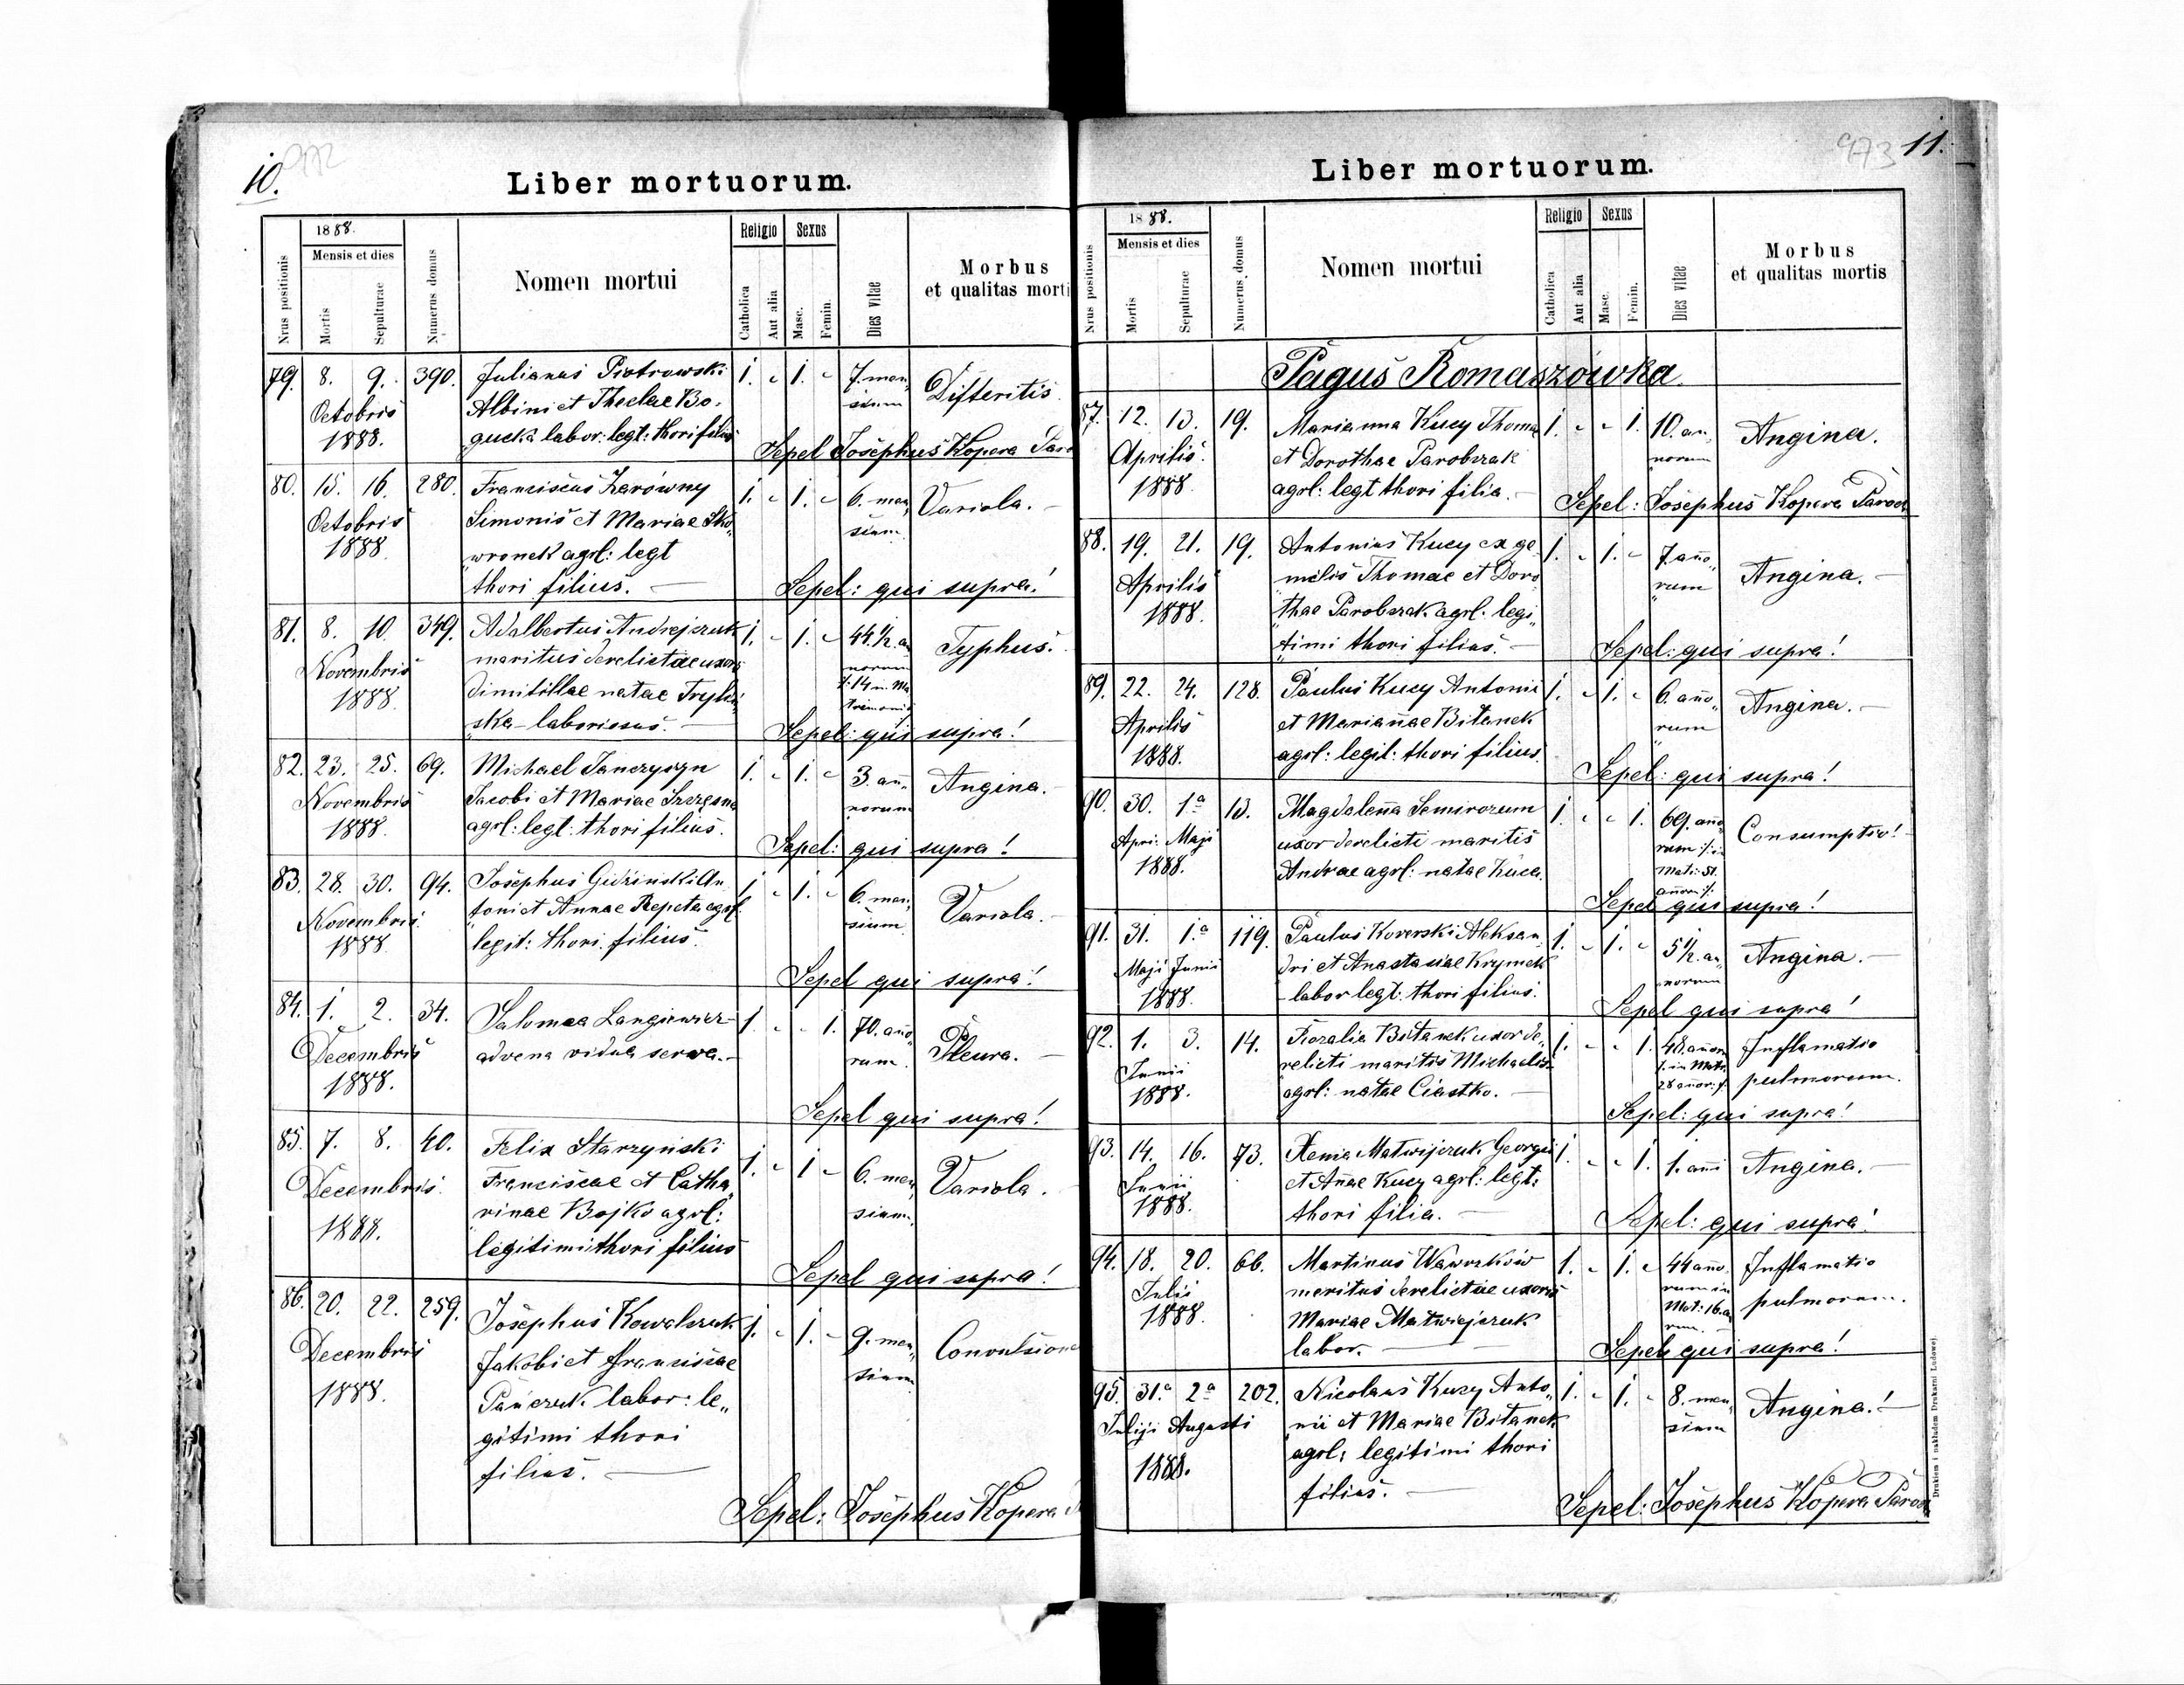 10.
972
Liber mortuorum.
Nrus positionis
1888.
Mensis et dies
Mortis
Sepulturae
Numerus domus
Nomen mortui
Religio
Catholica
Aut alia
Sexus
Masc.
Femin.
Dies vitae
Morbus
et qualitas morti
79. 8. 9. 390. Julianus Piotrowski 1. - 1. - 7. men„ Difteritis.
Octobris Albini et Theclae Bo„ sium
1888. gucka labor: legt: thori filius
Sepel Josephus Kopera Paro
80. 15. 16. 280. Franciscus Zarówny 1. - 1. - 6. men„ Variola. —
Octobris Simonis et Mariae Sko„ sium
1888. wronek agrl: legt
thori filius. — Sepel: qui supra!
81. 8. 10. 349. Adalbertus Andrejczuk 1. - 1. - 44 1/2 an Typhus.
Novembris maritus derelictae uxoris norum
1888. Dimitillae natae Trylin„ /:14 in Ma
ska laboriosus. — trimonio
Sepel: qui supra!
82. 23. 25. 69. Michael Janczyszyn 1. - 1. - 3. an„ Angina. —
Novembris Jacobi et Mariae Szczęsna norum
1888. agrl: legt: thori filius.
Sepel: qui supra!
83. 28. 30. 94. Josephus Gidziński An 1. - 1. - 6. men„ Variola. —
Novembris toni et Annae Repeta agrl: sium
1888. legit: thori filius.
Sepel qui supra!
84. 1. 2. 34. Salomea Langiewicz 1. - - 1. 70. año„ Pleura. —
Decembris advena vidua serva. — rum
1888.
Sepel qui supra!
85. 7. 8. 40. Felix Starzyński 1. - 1 - 6. men„ Variola. —
Decembris Franciscae et Catha„ sium.
1888. rinae Bojko agrl:
legitimi thori filius
Sepel qui supra!
86. 20. 22. 259. Josephus Kowalczuk 1. - 1. - 9. men„ Convulsione
Decembris Jakobi et Franciscae sium
1888. Pańczuk labor: le„
gitimi thori
filius. —
Sepel: Josephus Kopera
11.
973
Liber mortuorum.
Nrus positionis
1888.
Mensis et dies
Mortis
Sepulturae
Numerus domus
Nomen mortui
Religio
Catholica
Aut alia
Sexus
Masc.
Femin.
Dies vitae
Morbus
et qualitas mortis
Pagus Romaszówka
87. 12. 13. 19. Marianna Kucy Thomae 1. - - 1. 10. an„ Angina.
Aprilis et Dorothae Parobczak norum
1888. agrl: legt thori filia. —
Sepel: Josephus Kopera Paroch
88. 19. 21. 19. Antonius Kucy ex ge 1. - 1. - 7 año„ Angina. —
Aprilis melis Thomae et Doro rum
1888. thae Parobczak agrl: legi„
timi thori filius. — Sepel: qui supra!
89. 22. 24. 128. Paulus Kucy Antonii 1. - 1. - 6. año„ Angina. —
Aprilis et Mariañae Bitanek rum
1888. agrl: legit: thori filius.
Sepel: qui supra!
90. 30. 1ª 13. Magdaleña Semirozum 1. - - 1. 69. año„ Consumptio!
Apri: Maji uxor derelicti maritis rum /: in
1888. Andrae agrl: natae Kuca. Matri: 51.
añor: :/
Sepel qui supra!
91. 31. 1.ª 119. Paulus Koverski Aleksan 1. - 1. - 5 1/2. an„ Angina. —
Maji Junii dri et Anastasiae Krymek norum
1888. labor legt: thori filius.
Sepel qui supra!
92. 1. 3. 14. Rozalia Bitanek uxor de„ 1. - - 1. 48. añor Inflamatio
Junii relicti maritis Michaelis /: in Matr. pulmorum.
1888. agrl: natae Ciastko. — 28 añor: /:
Sepel: qui supra!
93. 14. 16. 73. Xenia Matwijczuk Georgii 1. - - 1. 1. añi Angina. —
Junii et Añae Kucy agrl: legt:
1888. thori filia. —
Sepel: qui supra!
94. 18. 20. 66. Martinus Wawrzków 1. - 1. - 44 año„ Inflamatio
Julii maritus derelictae uxoris rum in pulmorum.
1888. Mariae Matwiejczuk Mat: 16. a
labor. — rum.
Sepel: qui supra!
95. 31.ª 2ª 202. Nicolaus Kucy Anto„ 1. - 1. - 8. men„ Angina! —
Juliji Augusti nii et Mariae Bitanek sium
1888. agrl: legitimi thori
filius. —
Sepel: Josephus Kopera Paroch
Drukiem i nakładem Drukarni Ludowej.